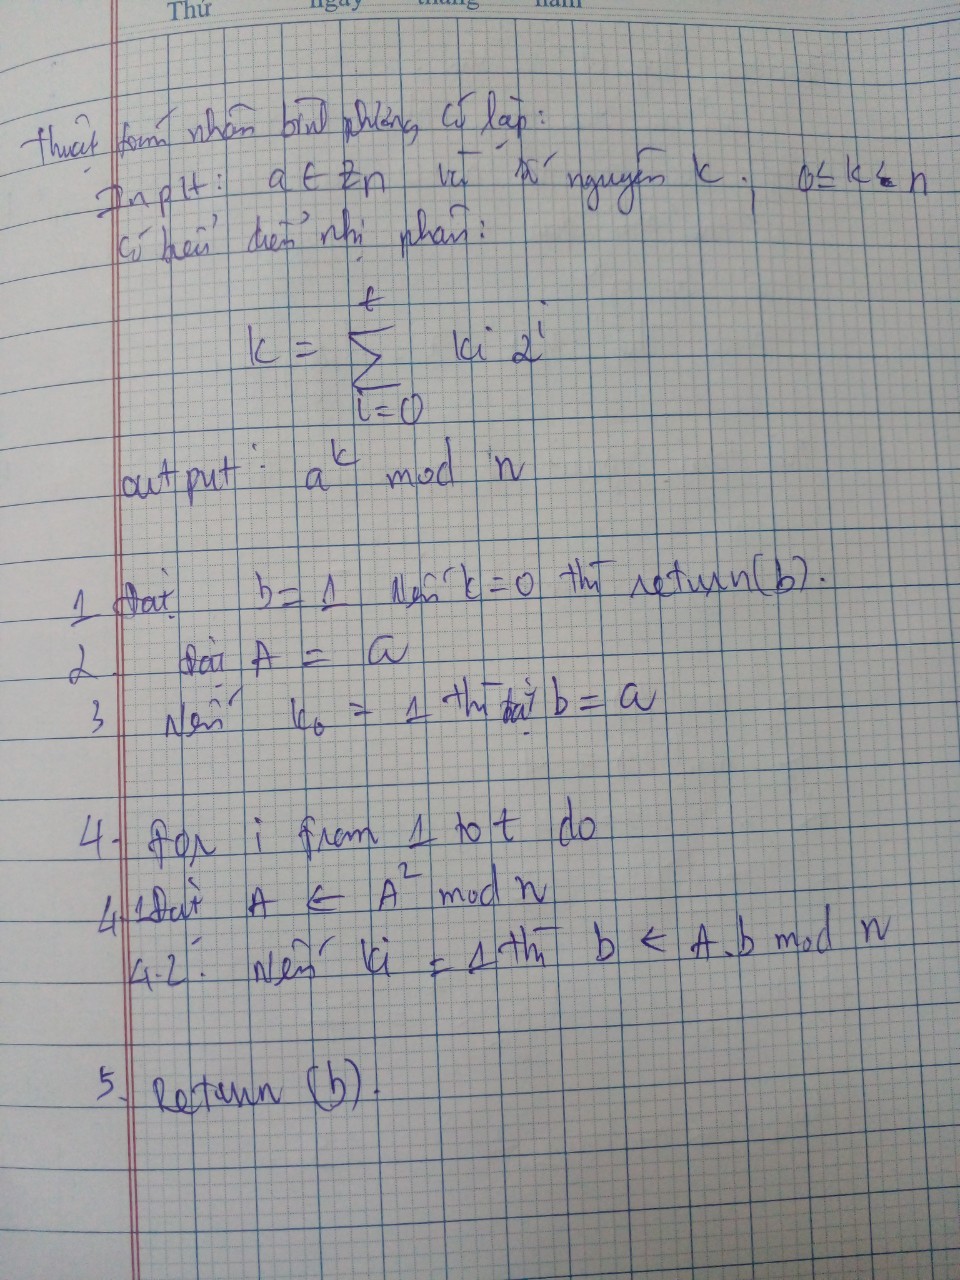 Thứ ngày tháng năm
Thuật toán nhân bình phương có lặp:
Input: a ∈ Zn và số nguyên k. 0 ≤ k < n
Có biểu diễn nhị phân:
k = ∑_{i=0}^{t} ki 2^i
output: a^k mod n
1 Đặt b = 1 Nếu k = 0 thì return(b).
2. Đặt A = a
3 Nếu k0 = 1 thì đặt b = a
4. For i from 1 to t do
4.1 Đặt A ← A^2 mod n
4.2: Nếu ki = 1 thì b ← A.b mod n
5. Return (b).